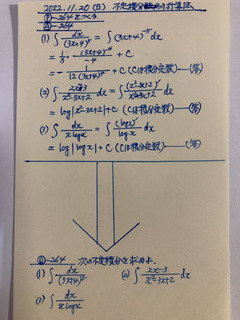 2022.11.20(日) 不定積分の計算法
(1) ∫dx/(3x+4)⁵ = ∫(3x+4)⁻⁵dx
= 1/3・(3x+4)⁻⁴/-4 + C
= -1/12(3x+4)⁴ + C (Cは積分定数)…(答)
(2) ∫2x-3/x²-3x+2 dx = ∫(x²-3x+2)'/x²-3x+2 dx
= log|x²-3x+2| + C (Cは積分定数)…(答)
(3) ∫dx/x log x = ∫(log x)'/log x dx
= log|log x| + C (Cは積分定数)…(答)
次の不定積分を求めよ.
(1) ∫dx/(3x+4)⁵ (2) ∫2x-3/x²-3x+2 dx
(3) ∫dx/x log x